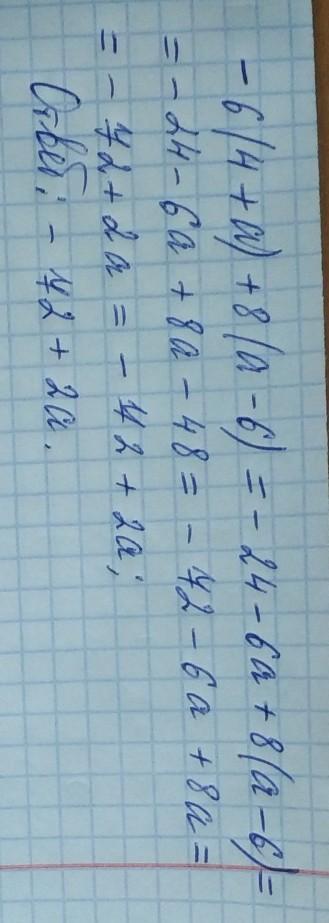 - 6(4 + a) + 8(a - 6) = - 24 - 6a + 8(a - 6) =
= - 24 - 6a + 8a - 48 = - 72 - 6a + 8a =
= - 72 + 2a = - 72 + 2a;
Ответ: - 72 + 2a.